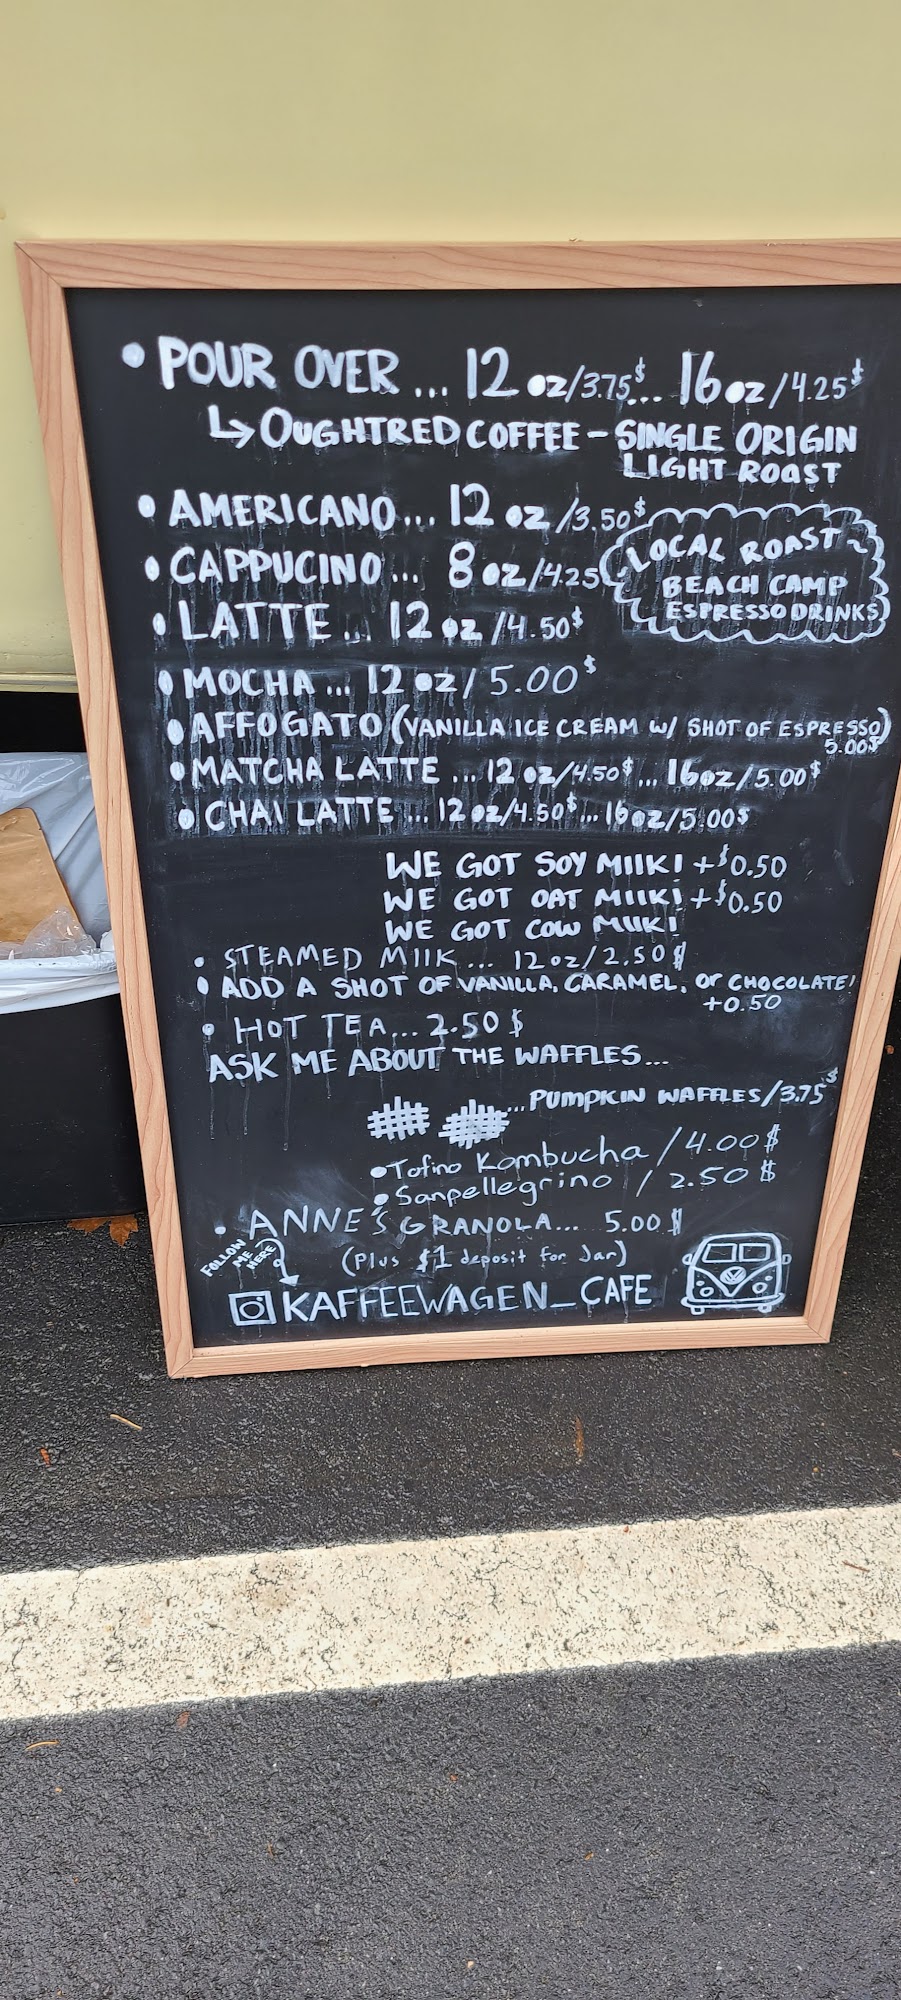 • POUR OVER ... 12 oz/3.75$... 16oz/4.25$
↳ OUGHTRED COFFEE - SINGLE ORIGIN
LIGHT ROAST
• AMERICANO... 12 oz/3.50$
• CAPPUCINO... 8 oz/4.25
LOCAL ROAST
BEACH CAMP
ESPRESSO DRINKS
• LATTE... 12 oz/4.50$
• MOCHA ... 12 oz/5.00$
• AFFOGATO (VANILLA ICE CREAM W/ SHOT OF ESPRESSO)
5.00$
• MATCHA LATTE ... 12 oz/4.50$ ... 16oz/5.00$
• CHAI LATTE ... 12 oz/4.50$... 16oz/5.00$
WE GOT SOY MIlK! +$0.50
WE GOT OAT MIlK! +$0.50
WE GOT COW MIlK!
• STEAMED MIlK ... 12oz/2.50$
• ADD A SHOT OF VANILLA, CARAMEL, or CHOCOLATE!
+0.50
• HOT TEA... 2.50$
ASK ME ABOUT THE WAFFLES...
...PUMPKIN WAFFLES/3.75$
• Tofino Kombucha / 4.00$
• Sanpellegrino / 2.50$
• ANNE'S GRANOLA... 5.00$
(Plus $1 deposit for Jar)
FOLLOW
ME
HERE
KAFFEEWAGEN_CAFE